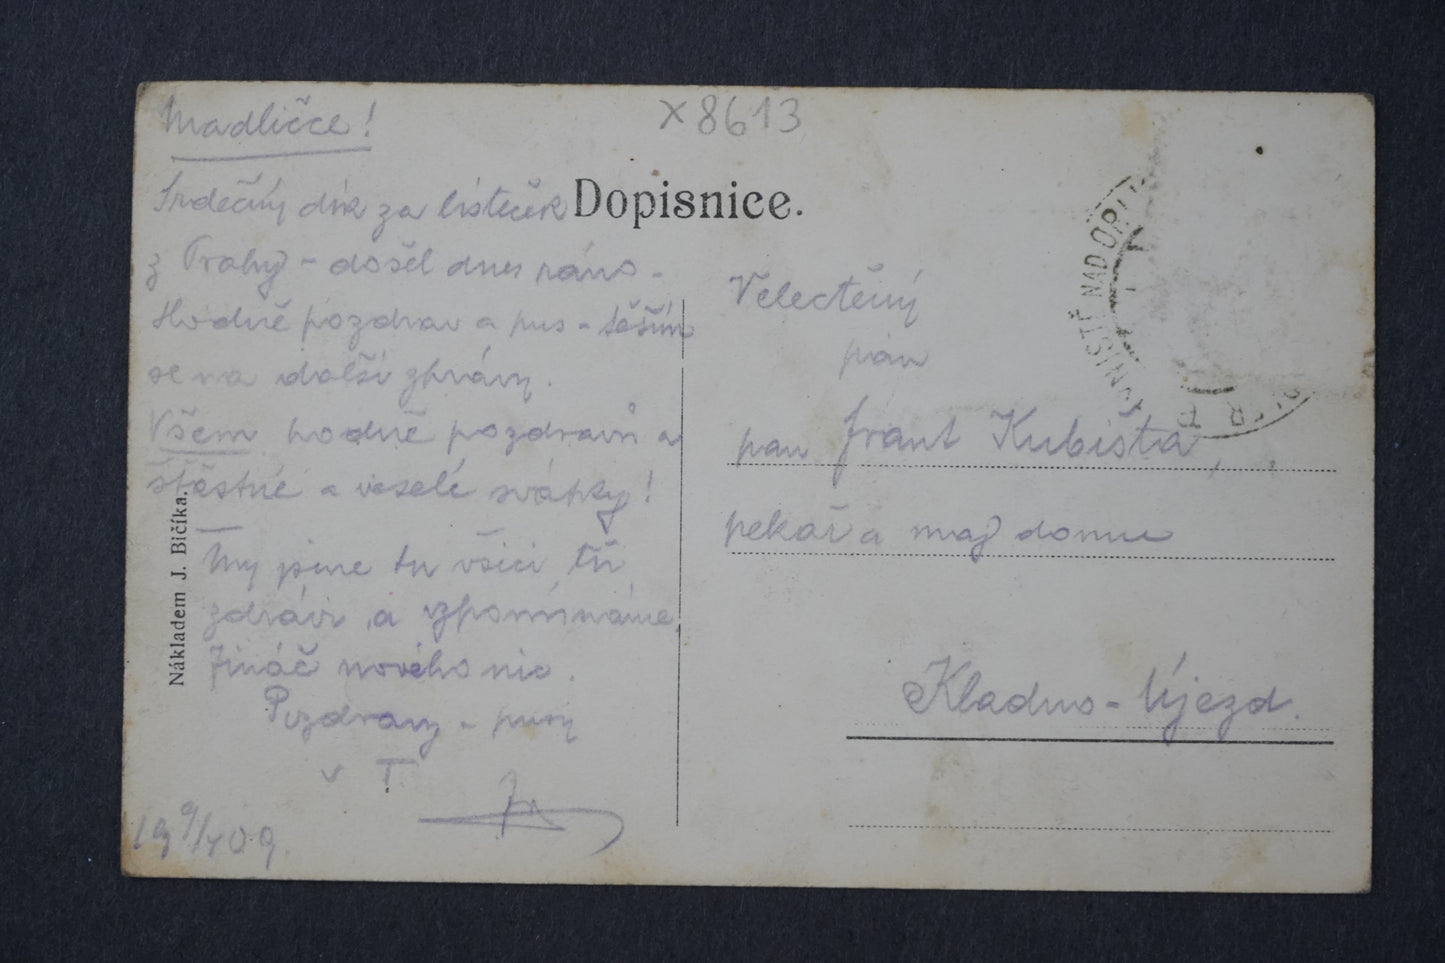 Madličce!
x 8613
Dopisnice.
Srdečný dík za lísteček
z Prahy - došel dnes ráno -
Hodně pozdrav a pus - těším
se na další zprávy.
Všem hodně pozdravů a
šťastné a veselé svátky!
My jsme tu všici tři
zdrávi a vzpomínáme,
Jináč nového nic.
Pozdravy - pusy
v T.
19 9/4 09.
Nákladem J. Bičíka.
NAD ORL
Velectěný
pán
pan Frant Kubišta,
pekař a maj domu
Kladno - Újezd.